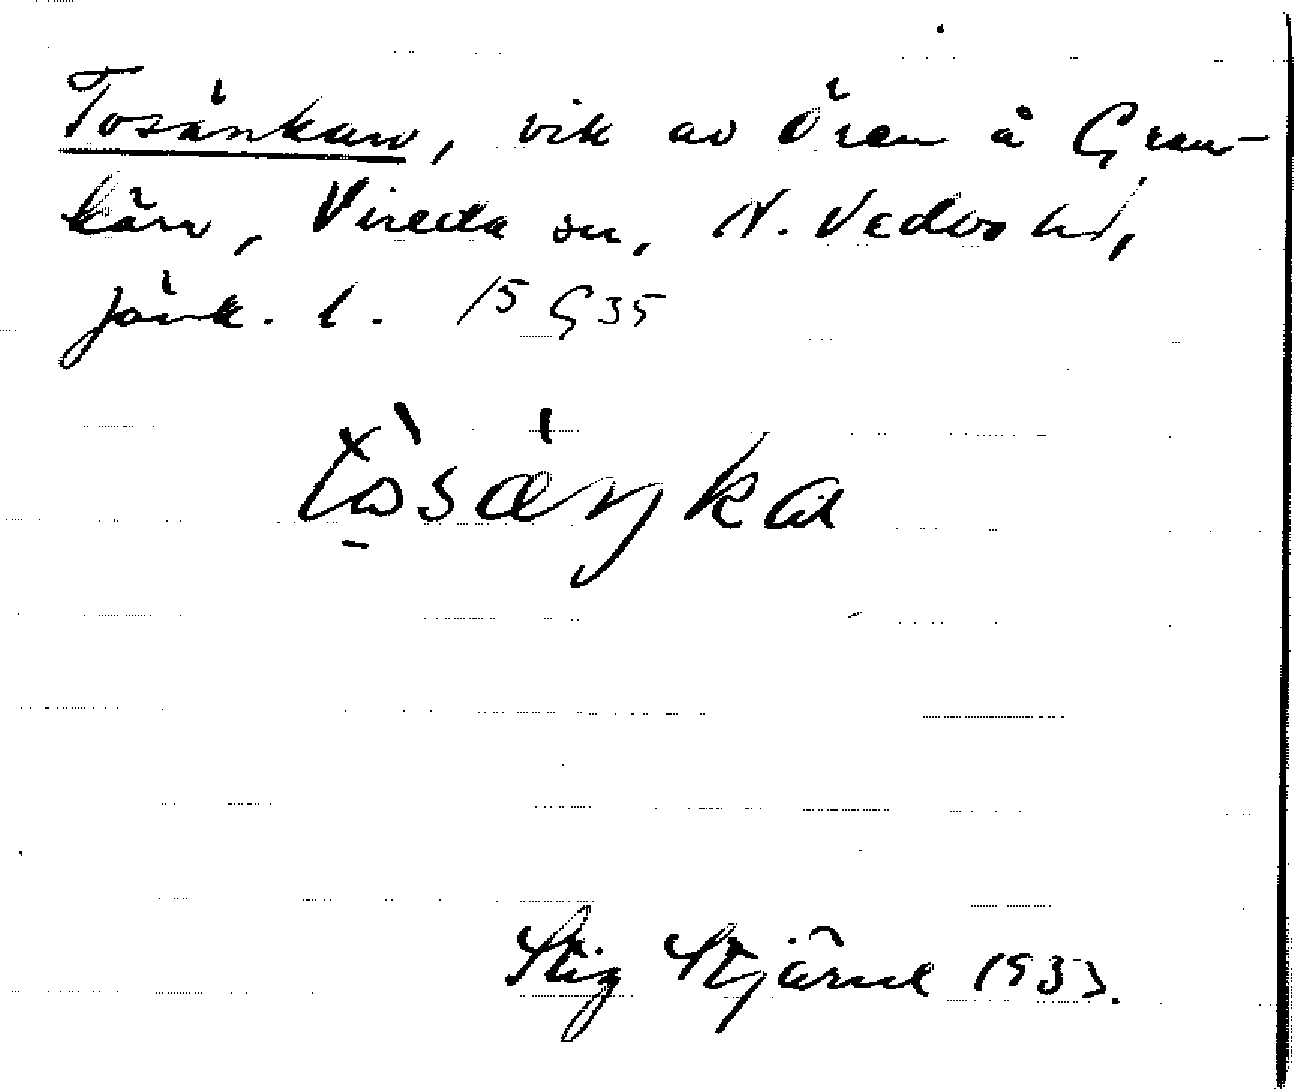 Tosänkan, vik av Ören å Gran-
kärr, Vireda sn, N. Vedbo hd,
Jönk. l. 15 G 35
tòsáŋka
Stig Stjärne 1933.